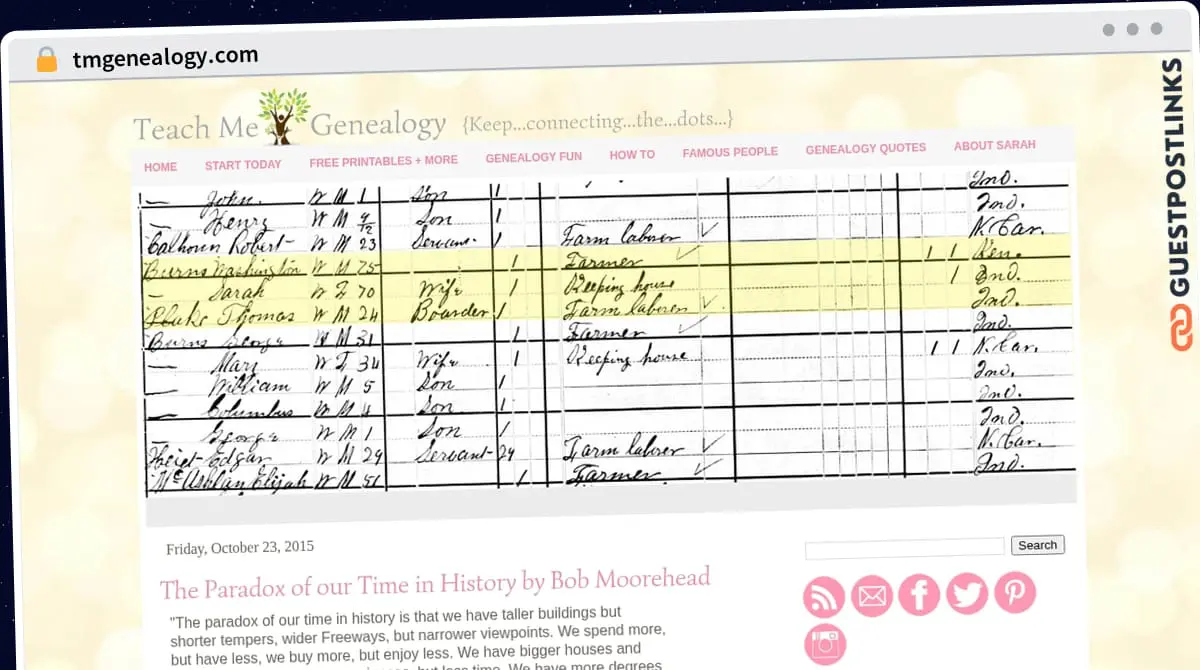 tmgenealogy.com
GUESTPOSTLINKS
Teach Me Genealogy {Keep...connecting...the...dots...}
HOME START TODAY FREE PRINTABLES + MORE GENEALOGY FUN HOW TO FAMOUS PEOPLE GENEALOGY QUOTES ABOUT SARAH
— John W M 1 Son 1 Ind.
— Henry W M Son 1 Ind.
Calhoun Robert W M 23 Servant 1 Farm laborer N. Car.
Burns Washington W M 75 1 Farmer 1 1 Ken.
— Sarah W F 70 Wife 1 Keeping house 1 Ind.
Thomas W M 24 Boarder 1 Farm laborer Ind.
Burns George W M 31 1 Farmer Ind.
— Mary W F 34 Wife 1 Keeping house 1 1 N. Car.
— William W M 5 Son 1 Ind.
— Columbus W M 4 Son 1 Ind.
— George W M 1 Son 1 Ind.
Edgar W M 29 Servant 29 Farm laborer N. Car.
Elijah W M 51 1 Farmer Ind.
Friday, October 23, 2015
Search
The Paradox of our Time in History by Bob Moorehead
"The paradox of our time in history is that we have taller buildings but
shorter tempers, wider Freeways, but narrower viewpoints. We spend more,
but have less, we buy more, but enjoy less. We have bigger houses and
but less time. We have more degrees